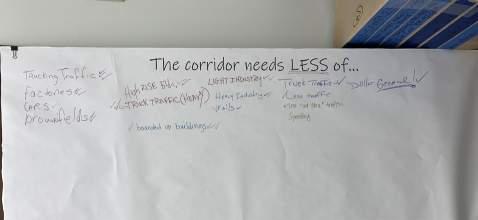 The corridor needs LESS of...
Trucking Traffic
factories
cars
brownfields
High RISE Bldg.
TRUCK TRAFFIC (HEAVY)
boarded up buildings
LIGHT INDUSTRY
Heavy Industry
Rails
Truck Traffic
Less traffic
speeding
Dollar General